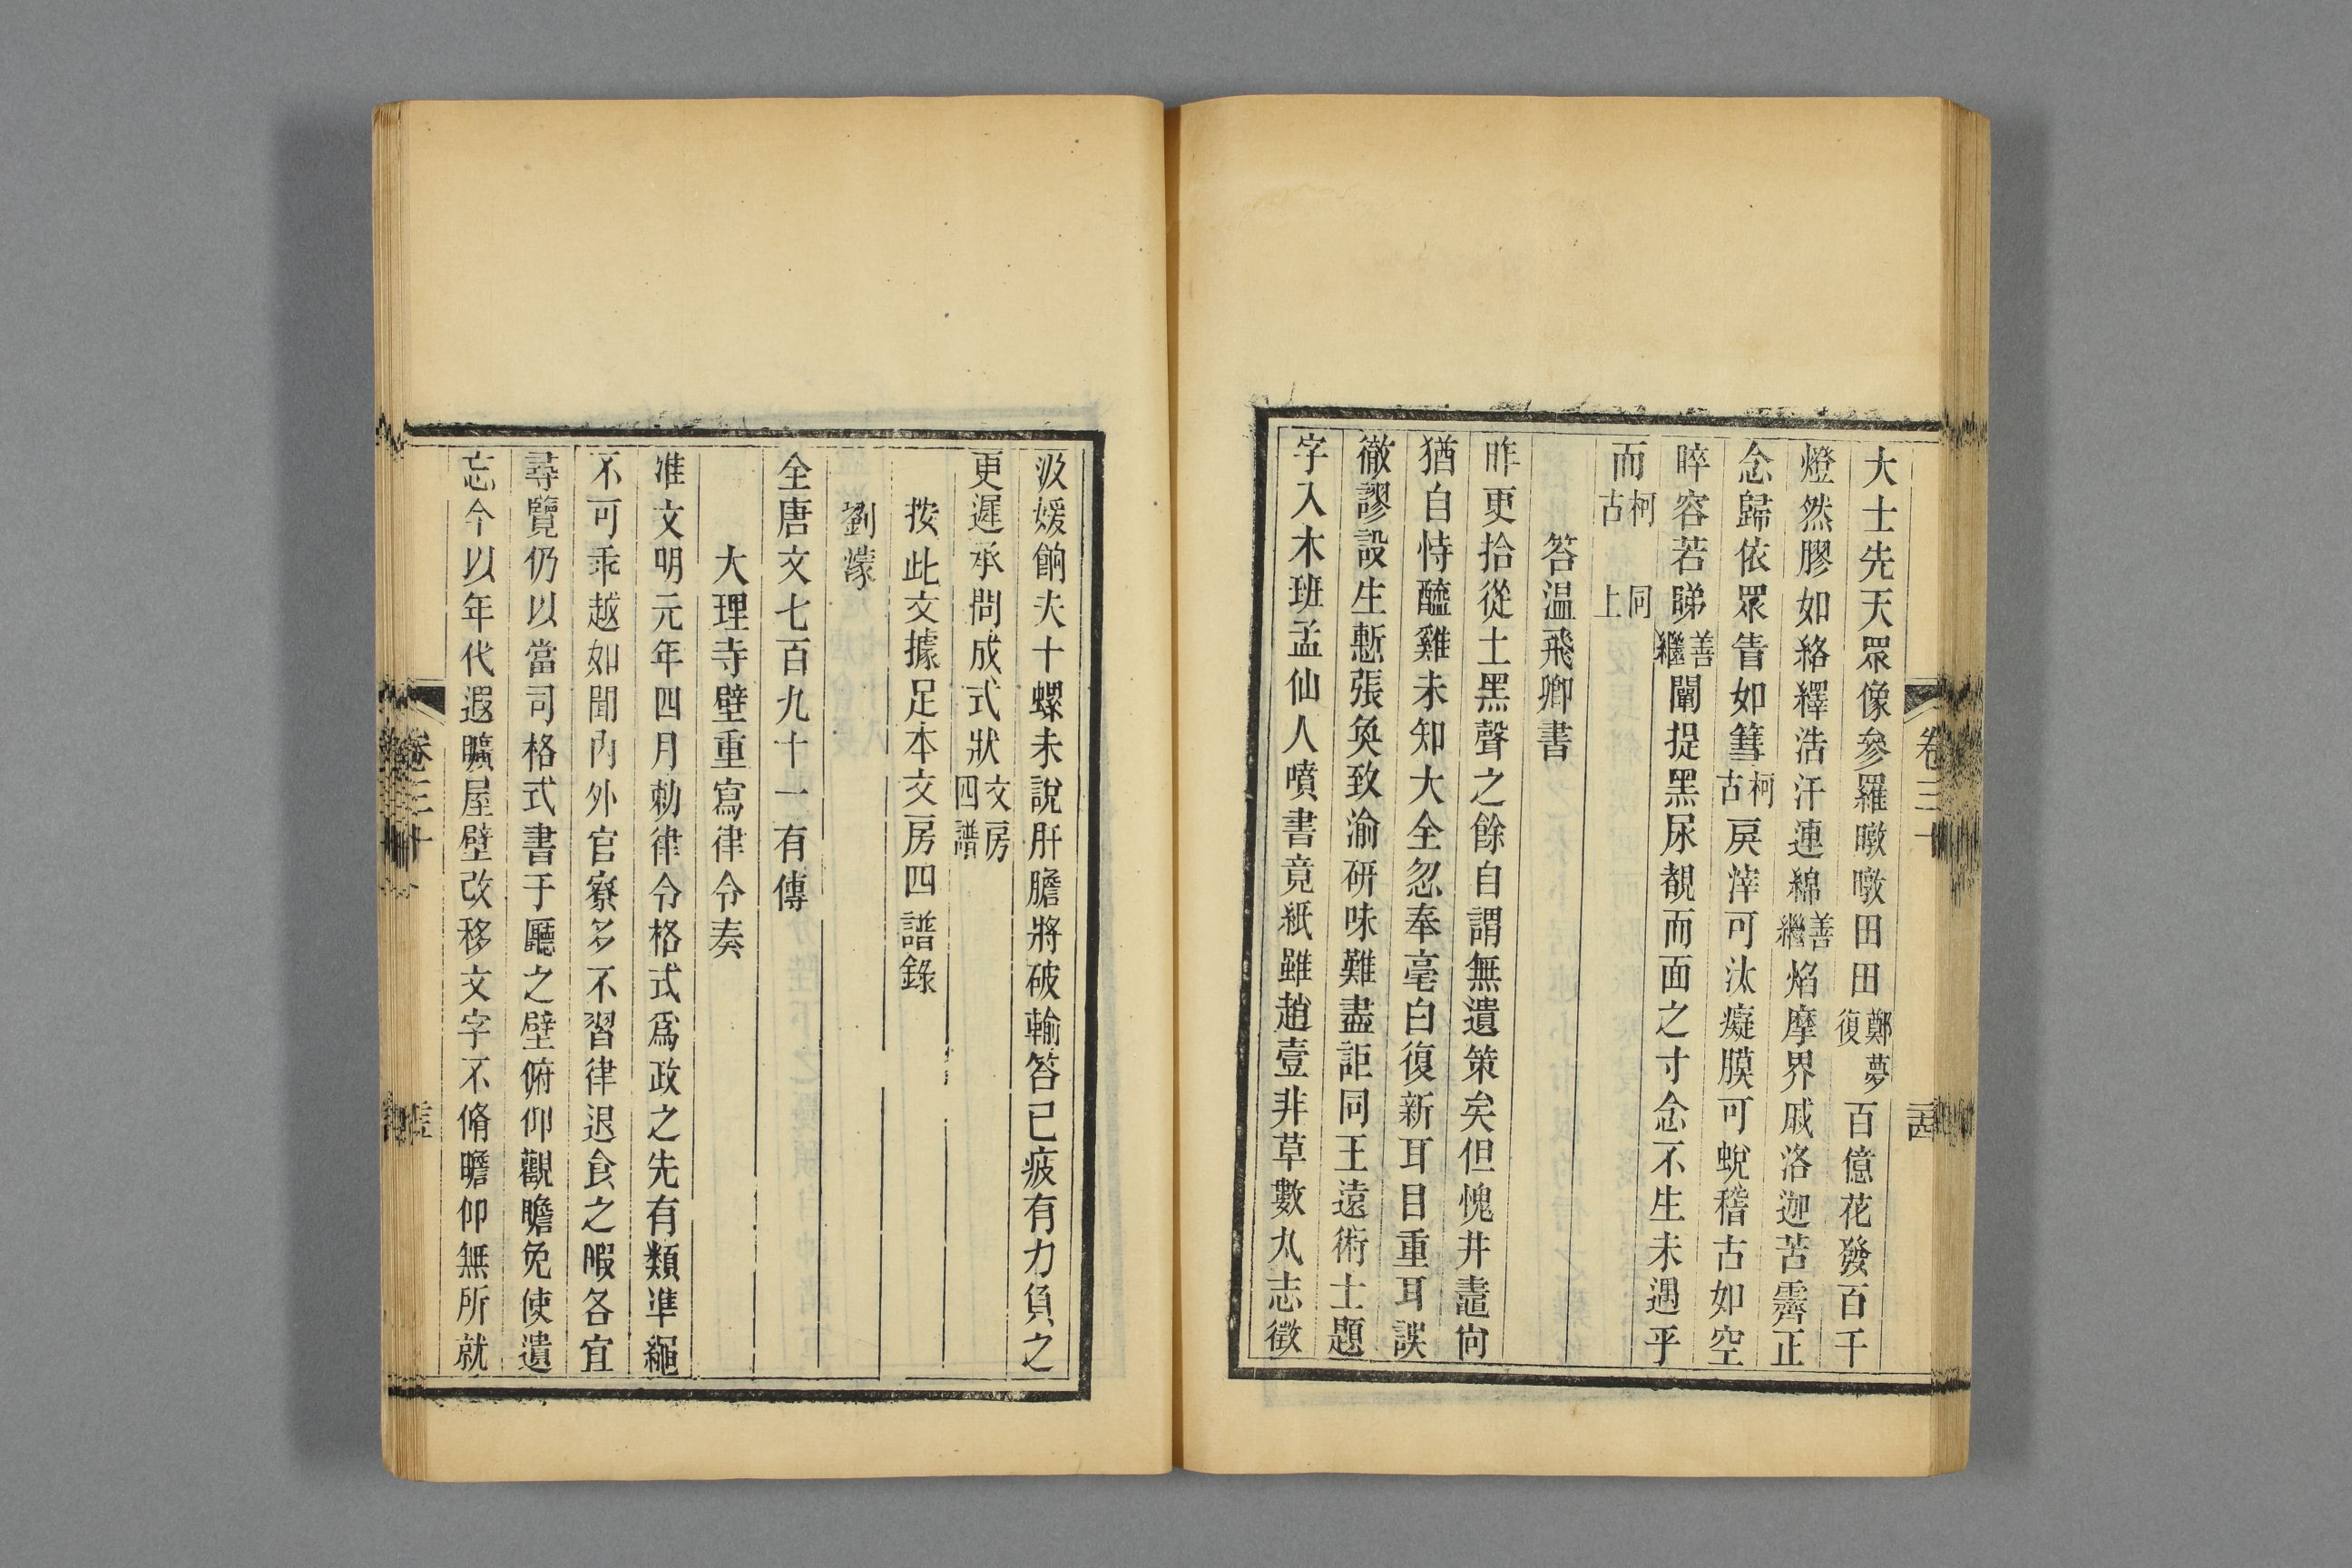 大士先天眾像參羅暾暾田田鄭夢復百億花發百千
燈然膠如絡繹浩汗連綿善繼焰摩界戚洛迦苦霽正
念歸依眾眚如篲柯古戾滓可汰癡膜可蛻稽古如空
睟容若睇善繼闡提黑尿覩而面之寸念不生未遇乎
而柯古同上
答温飛卿書
昨更拾從土黑聲之餘自謂無遺策矣但愧井䵷尙
猶自恃醯雞未知大全忽奉毫白復新耳目重耳誤
徹謬設生慙張奐致渝研味難盡詎同王遠術士題
字入木班孟仙人噴書竟紙雖趙壹非草數丸志徵
汲媛餉夫十螺未說肝膽將破輸答已疲有力負之
更遲承問成式狀文房四譜
按此文據足本文房四譜錄
劉濛
全唐文七百九十一有傳
大理寺壁重寫律令奏
准文明元年四月勅律令格式爲政之先有類準繩
不可乖越如聞內外官寮多不習律退食之暇各宜
尋覽仍以當司格式書于廳之壁俯仰觀瞻免使遺
忘今以年代遐曠屋壁改移文字不脩瞻仰無所就
卷三十
卷三十